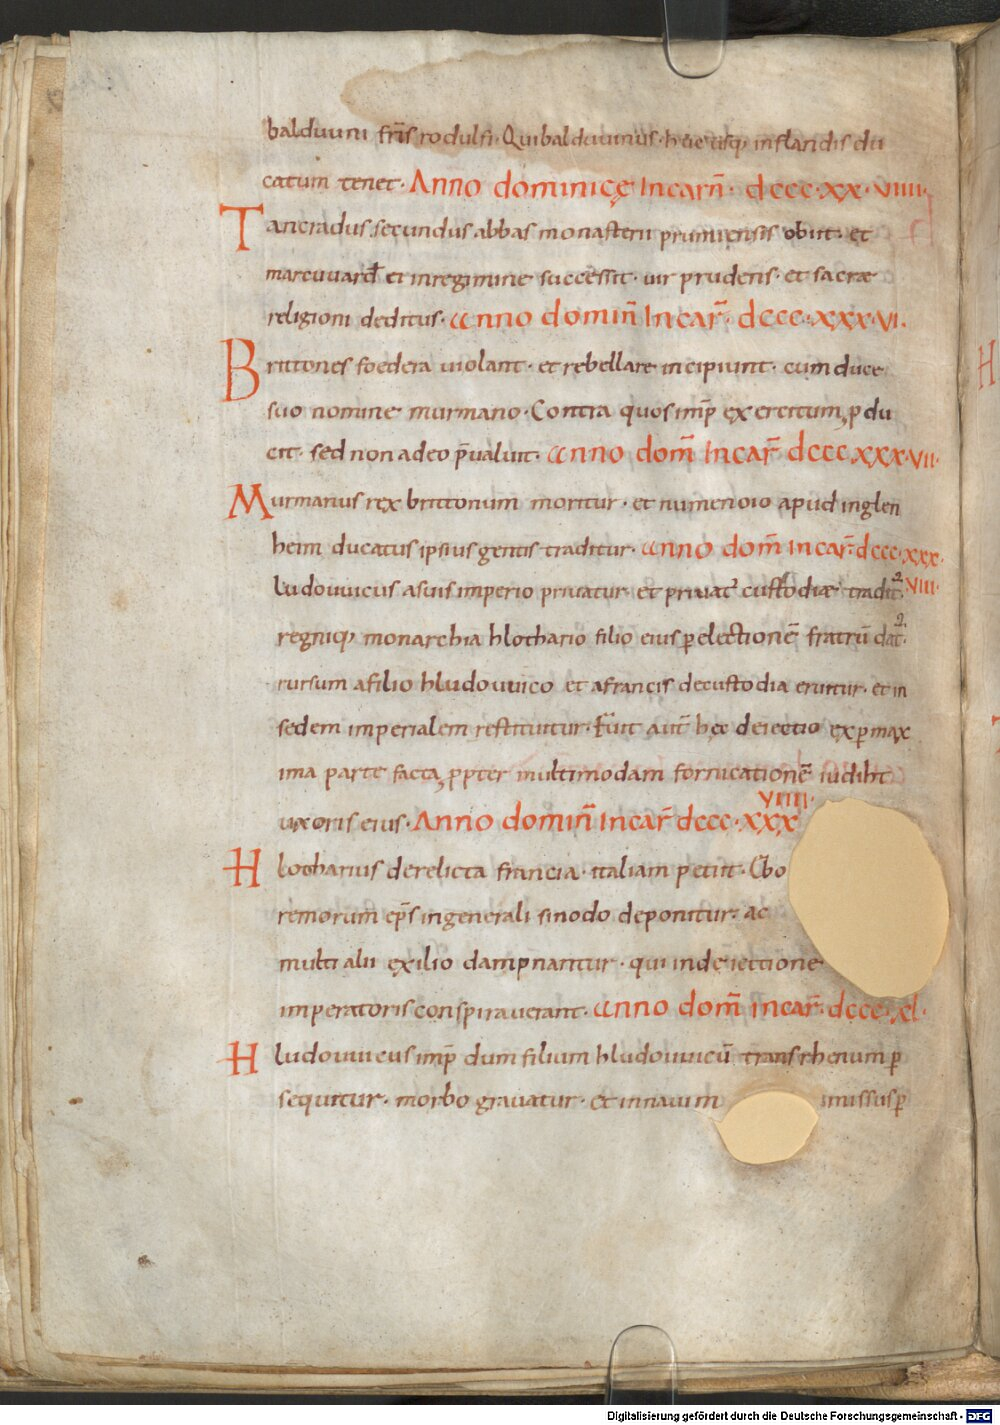 balduuini fr̄is rodulfi· Qui balduuinus· hucusq; in flandris du
catum tenet· Anno dominicę Incarn̄· dccc·xx·viiii·
Tancradus secundus abbas monasterii prumiensis obiit· et
marcuuard' ei in regimine successit· uir prudens· et sacrae
religioni deditus· Anno domin̄ Incar̄· dccc·xxx·vi·
Brittones foedera uiolant· et rebellare incipiunt· cum duce
suo nomine murmano· Contra quos imp̄ exercitum ꝓdu
cit· sed non adeo p̄ualuit· Anno dom̄ Incar̄ dccc xxx·vii·
Murmanus rex brittonum moritur· et numenoio apud inglen
heim ducatus ipsius gentis traditur· Anno dom̄ incar̄· dccc·xxx·
viii·
ludouuicus a suis imperio priuatur· et priuat' custodiae tradit᷑·
regniq; monarchia hlothario filio eius ꝑ electionē fratrū dat᷑·
rursum a filio hludouuico et a francis de custodia eruitur· et in
sedem imperialem restituitur· Fuit aut̄ hęc deiectio ex ꝑmax
ima parte facta ꝓpter multimodam fornicationē iudiht
uxoris eius· Anno domin̄ Incar̄ dccc·xxx
viiii·
Hlotharius derelicta francia· italiam petiit· Ebo
remorum ep̄s in generali sinodo deponitur· ac
multi alii exilio dampnantur· qui in deiectione
imperatoris conspirauerant· Anno dom̄ incar̄· dccc·xl·
Hludouuicus imp̄ dum filium hludouuicū trans rhenum ꝑ
sequitur· morbo grauatur· et in nauim imissus ꝑ
Digitalisierung gefördert durch die Deutsche Forschungsgemeinschaft - DFG